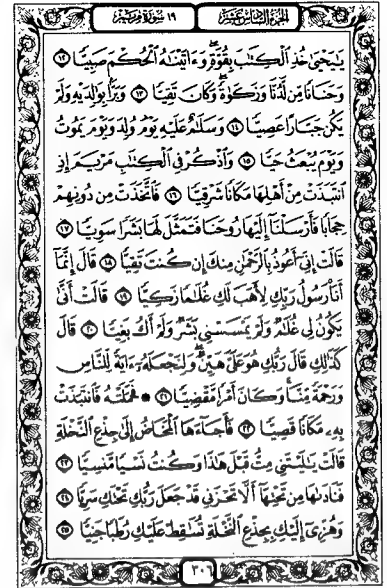 الجزء السادس عشر ١٩ سورة مريم
يَٰيَحْيَىٰ خُذِ ٱلْكِتَٰبَ بِقُوَّةٍۖ وَءَاتَيْنَٰهُ ٱلْحُكْمَ صَبِيًّا ١٢
وَحَنَانًا مِّن لَّدُنَّا وَزَكَوٰةًۖ وَكَانَ تَقِيًّا ١٣ وَبَرًّۢا بِوَٰلِدَيْهِ وَلَمْ
يَكُن جَبَّارًا عَصِيًّا ١٤ وَسَلَٰمٌ عَلَيْهِ يَوْمَ وُلِدَ وَيَوْمَ يَمُوتُ
وَيَوْمَ يُبْعَثُ حَيًّا ١٥ وَٱذْكُرْ فِى ٱلْكِتَٰبِ مَرْيَمَ إِذِ
ٱنتَبَذَتْ مِنْ أَهْلِهَا مَكَانًا شَرْقِيًّا ١٦ فَٱتَّخَذَتْ مِن دُونِهِمْ
حِجَابًا فَأَرْسَلْنَآ إِلَيْهَا رُوحَنَا فَتَمَثَّلَ لَهَا بَشَرًا سَوِيًّا ١٧
قَالَتْ إِنِّىٓ أَعُوذُ بِٱلرَّحْمَٰنِ مِنكَ إِن كُنتَ تَقِيًّا ١٨ قَالَ إِنَّمَآ
أَنَا۠ رَسُولُ رَبِّكِ لِأَهَبَ لَكِ غُلَٰمًا زَكِيًّا ١٩ قَالَتْ أَنَّىٰ
يَكُونُ لِى غُلَٰمٌ وَلَمْ يَمْسَسْنِى بَشَرٌ وَلَمْ أَكُ بَغِيًّا ٢٠ قَالَ
كَذَٰلِكِ قَالَ رَبُّكِ هُوَ عَلَىَّ هَيِّنٌۖ وَلِنَجْعَلَهُۥٓ ءَايَةً لِّلنَّاسِ
وَرَحْمَةً مِّنَّاۚ وَكَانَ أَمْرًا مَّقْضِيًّا ٢١ * فَحَمَلَتْهُ فَٱنتَبَذَتْ
بِهِۦ مَكَانًا قَصِيًّا ٢٢ فَأَجَآءَهَا ٱلْمَخَاضُ إِلَىٰ جِذْعِ ٱلنَّخْلَةِ
قَالَتْ يَٰلَيْتَنِى مِتُّ قَبْلَ هَٰذَا وَكُنتُ نَسْيًا مَّنسِيًّا ٢٣
فَنَادَىٰهَا مِن تَحْتِهَآ أَلَّا تَحْزَنِى قَدْ جَعَلَ رَبُّكِ تَحْتَكِ سَرِيًّا ٢٤
وَهُزِّىٓ إِلَيْكِ بِجِذْعِ ٱلنَّخْلَةِ تُسَٰقِطْ عَلَيْكِ رُطَبًا جَنِيًّا ٢٥